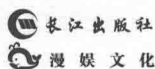 长江出版社
漫娱文化